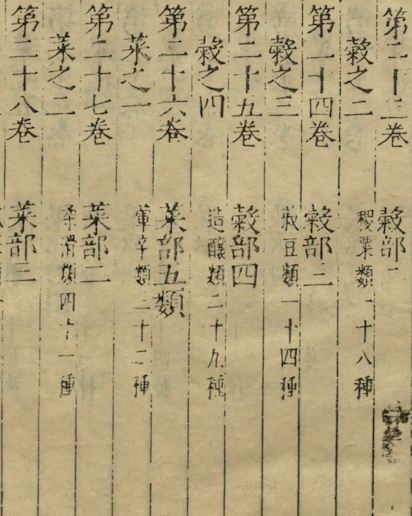 第二十三卷 穀部二
穀之二 稷粟類一十八種
第二十四卷 穀部三
穀之三 菽豆類一十四種
第二十五卷 穀部四
穀之四 造釀類二十九種
第二十六卷 菜部五類
菜之一 葷辛類三十二種
第二十七卷 菜部二
菜之二 柔滑類四十一種
第二十八卷 菜部三